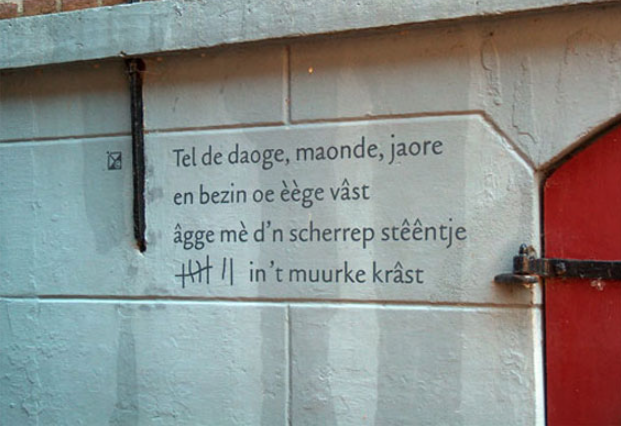 Tel de daoge, maonde, jaore
en bezin oe èège vâst
âgge mè d'n scherrep stêêntje
in't muurke krâst